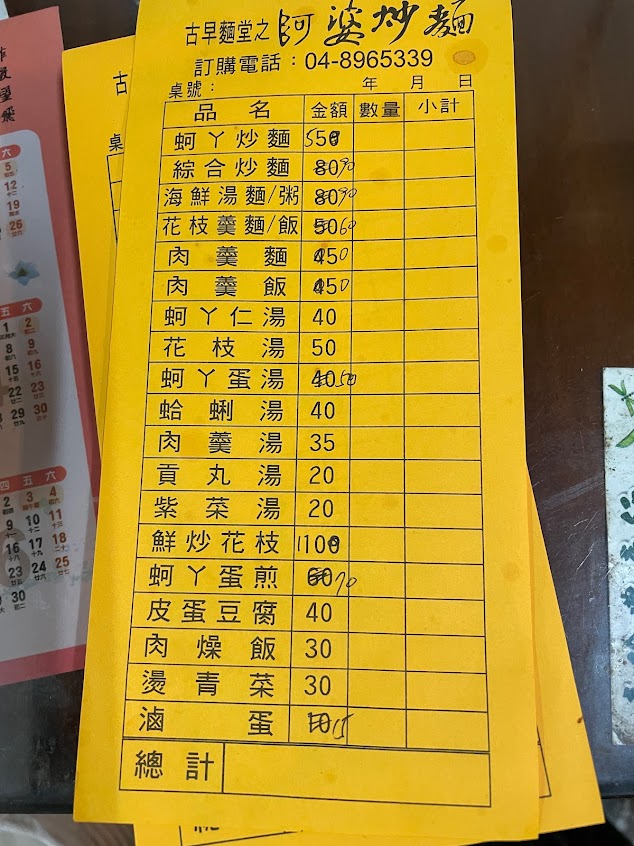 古早麵堂之阿婆炒麵
訂購電話：04-8965339
桌號： 年 月 日
品名 金額 數量 小計
蚵丫炒麵 55
綜合炒麵 80 90
海鮮湯麵/粥 80 90
花枝羹麵/飯 50 60
肉羹麵 50
肉羹飯 50
蚵丫仁湯 40
花枝湯 50
蚵丫蛋湯 40 50
蛤蜊湯 40
肉羹湯 35
貢丸湯 20
紫菜湯 20
鮮炒花枝 110
蚵丫蛋煎 60 70
皮蛋豆腐 40
肉燥飯 30
燙青菜 30
滷蛋 10 15
總計
古
桌
六
5
12
19
26
五 六
1 2
8 9
15 16
22 23
29 30
四 五 六
2 3 4
9 10 11
16 17 18
23 24 25
30